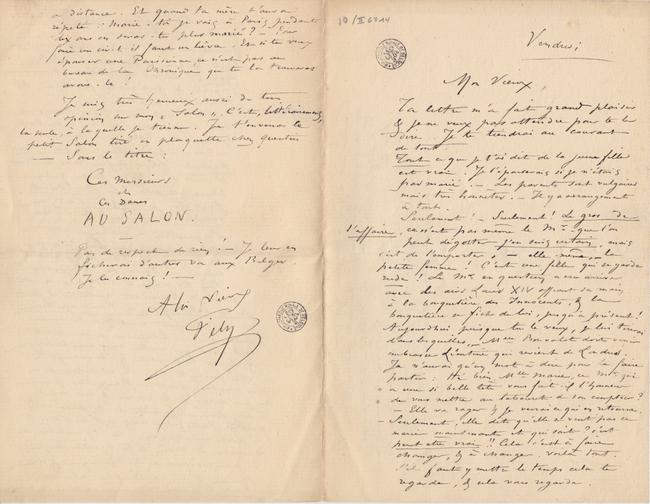 10/II 6414
Vendredi
Mon Vieux,
Ta lettre m'a fait grand plaisir
& je ne veux pas attendre pour te le
dire. Je te tiendrai au courant
de tout
Tout ce que je t'ai dit de la jeune fille
est vrai. Je l'épouserais si je n'étais
pas marié. — Les parents sont vulgaires
mais très honnêtes. — Il y a arrangement
à tout.
Seulement! — Seulement! Le gros de
l'affaire, ce n'est pas même le Mr. que l'on
peut dégotter j'en suis certain, mais
c'est de l'emporter, — elle même, la
petite femme! C'est une fille qui se garde
Le Mr. en question a
avec des airs Louis XIV offrant sa main
à la bouquetière des Innocents, & la
bouquetière se fiche de lui, jusqu'à présent!
Aujourd'hui, puisque tu le veux, je
Mme doit venir
embrasser Léontine qui revient de Londres.
Je n'aurai qu'un mot à dire pour la faire
parler: Hé bien, Mlle Marie, ce Mr. qui
a une si belle tête vous fait-il l'honneur
de vous mettre au de son comptoir?
— Elle va rager & je verrai ce qui en retourne.
Seulement, elle dit qu'elle ne veut pas se
marier maintenant et qui sait? c'est
peut être vrai!! Cela c'est à faire
changer, & à change. voilà tout.
S'il faut y mettre le temps cela te
regarde, & cela vous regarde.
à distance. Et quand ta mère t'aura
répété: Marie-toi je vais à Paris pendant
dix ans en seras-tu plus marié? — Pour
faire un civet il faut un lièvre. Et si tu veux
épouser une Parisienne ce n'est pas au
bureau de la Chronique que tu la trouveras
avoue-le!
Je suis très heureux aussi de ton
opinion sur mon « Salon ». C'est, littérairement,
la seule, à laquelle je tienne. Je t'enverrai le
petit Salon tiré en plaquette chez Quantin
— Sous le titre:
Ces Messieurs
et
Ces Dames
AU SALON.
Pas de respect de rien. — Je leur en
ficherai d'autres va aux Belges
Je les connais! —
A toi Vieux
Fély